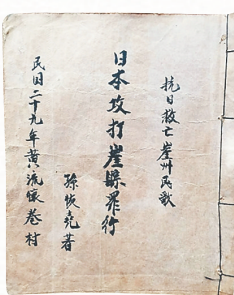 抗日救亡崖州民歌
日本攻打崖縣罪行
孫 著
民国二十九年黄流懷卷村